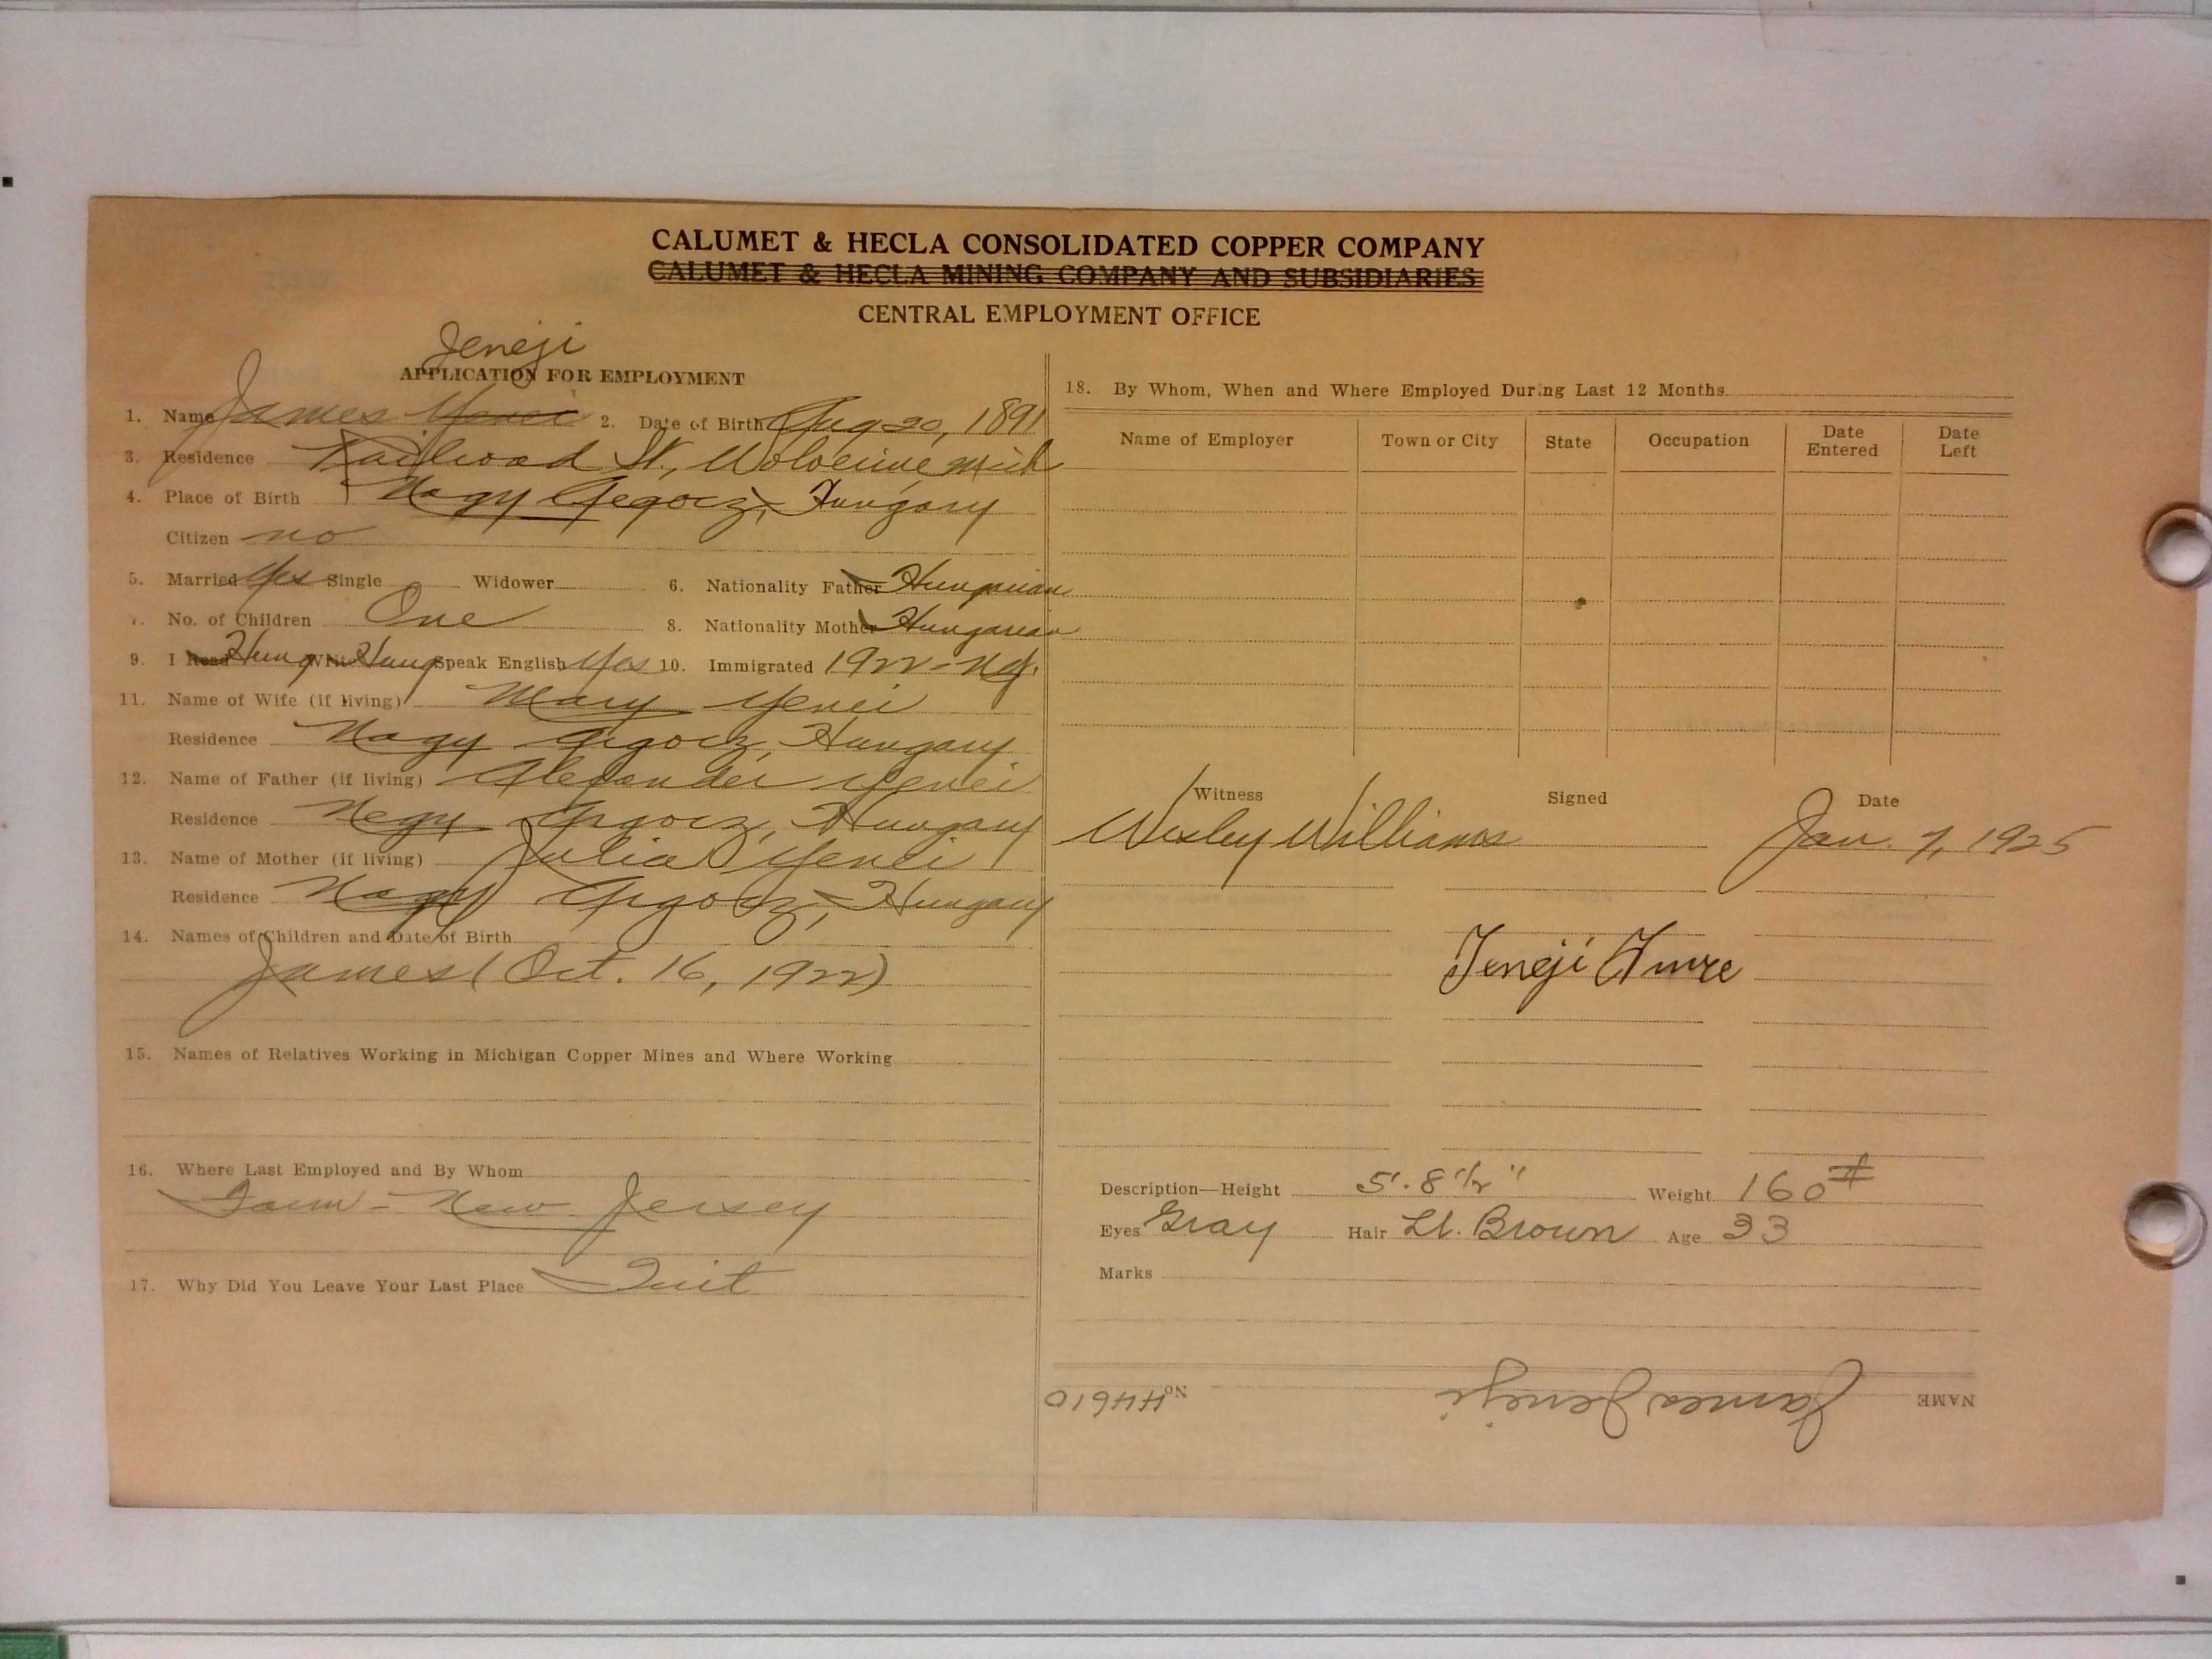 CALUMET & HECLA CONSOLIDATED COPPER COMPANY
CALUMET & HECLA MINING COMPANY AND SUBSIDIARIES
CENTRAL EMPLOYMENT OFFICE
Jeneji
APPLICATION FOR EMPLOYMENT
1. Name James Yenei 2. Date of Birth Aug 20, 1891
3. Residence Railroad St., Wolverine, Mich
4. Place of Birth Nagy Gegocz, Hungary
Citizen no
5. Married Yes Single Widower 6. Nationality Father Hungarian
7. No. of Children One 8. Nationality Mother Hungarian
9. I Read Hung Write Hung Speak English Yes 10. Immigrated 1922 - N.Y.
11. Name of Wife (if living) Mary Yenei
Residence Nagy Gegocz, Hungary
12. Name of Father (if living) Alexander Yenei
Residence Nagy Gegocz, Hungary
13. Name of Mother (if living) Julia Yenei
Residence Nagy Gegocz, Hungary
14. Names of Children and Date of Birth
James (Oct. 16, 1922)
15. Names of Relatives Working in Michigan Copper Mines and Where Working
16. Where Last Employed and By Whom
Farm - New Jersey
17. Why Did You Leave Your Last Place Quit
18. By Whom, When and Where Employed During Last 12 Months
Name of Employer Town or City State Occupation Date Entered Date Left
Witness Signed Date
Wesley Williams Jan. 7, 1925
Jeneji Imre
Description—Height 5'. 8 1/2" Weight 160 #
Eyes Gray Hair Lt. Brown Age 33
Marks
NAME James Jeneji No. H4610